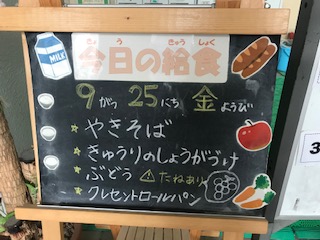 MILK
きょう きゅうしょく
今日の給食
9がつ 25にち 金ようび
★やきそば
★きゅうりのしょうがづけ
★ぶどう ⚠たねあり
★クレセントロールパン
3